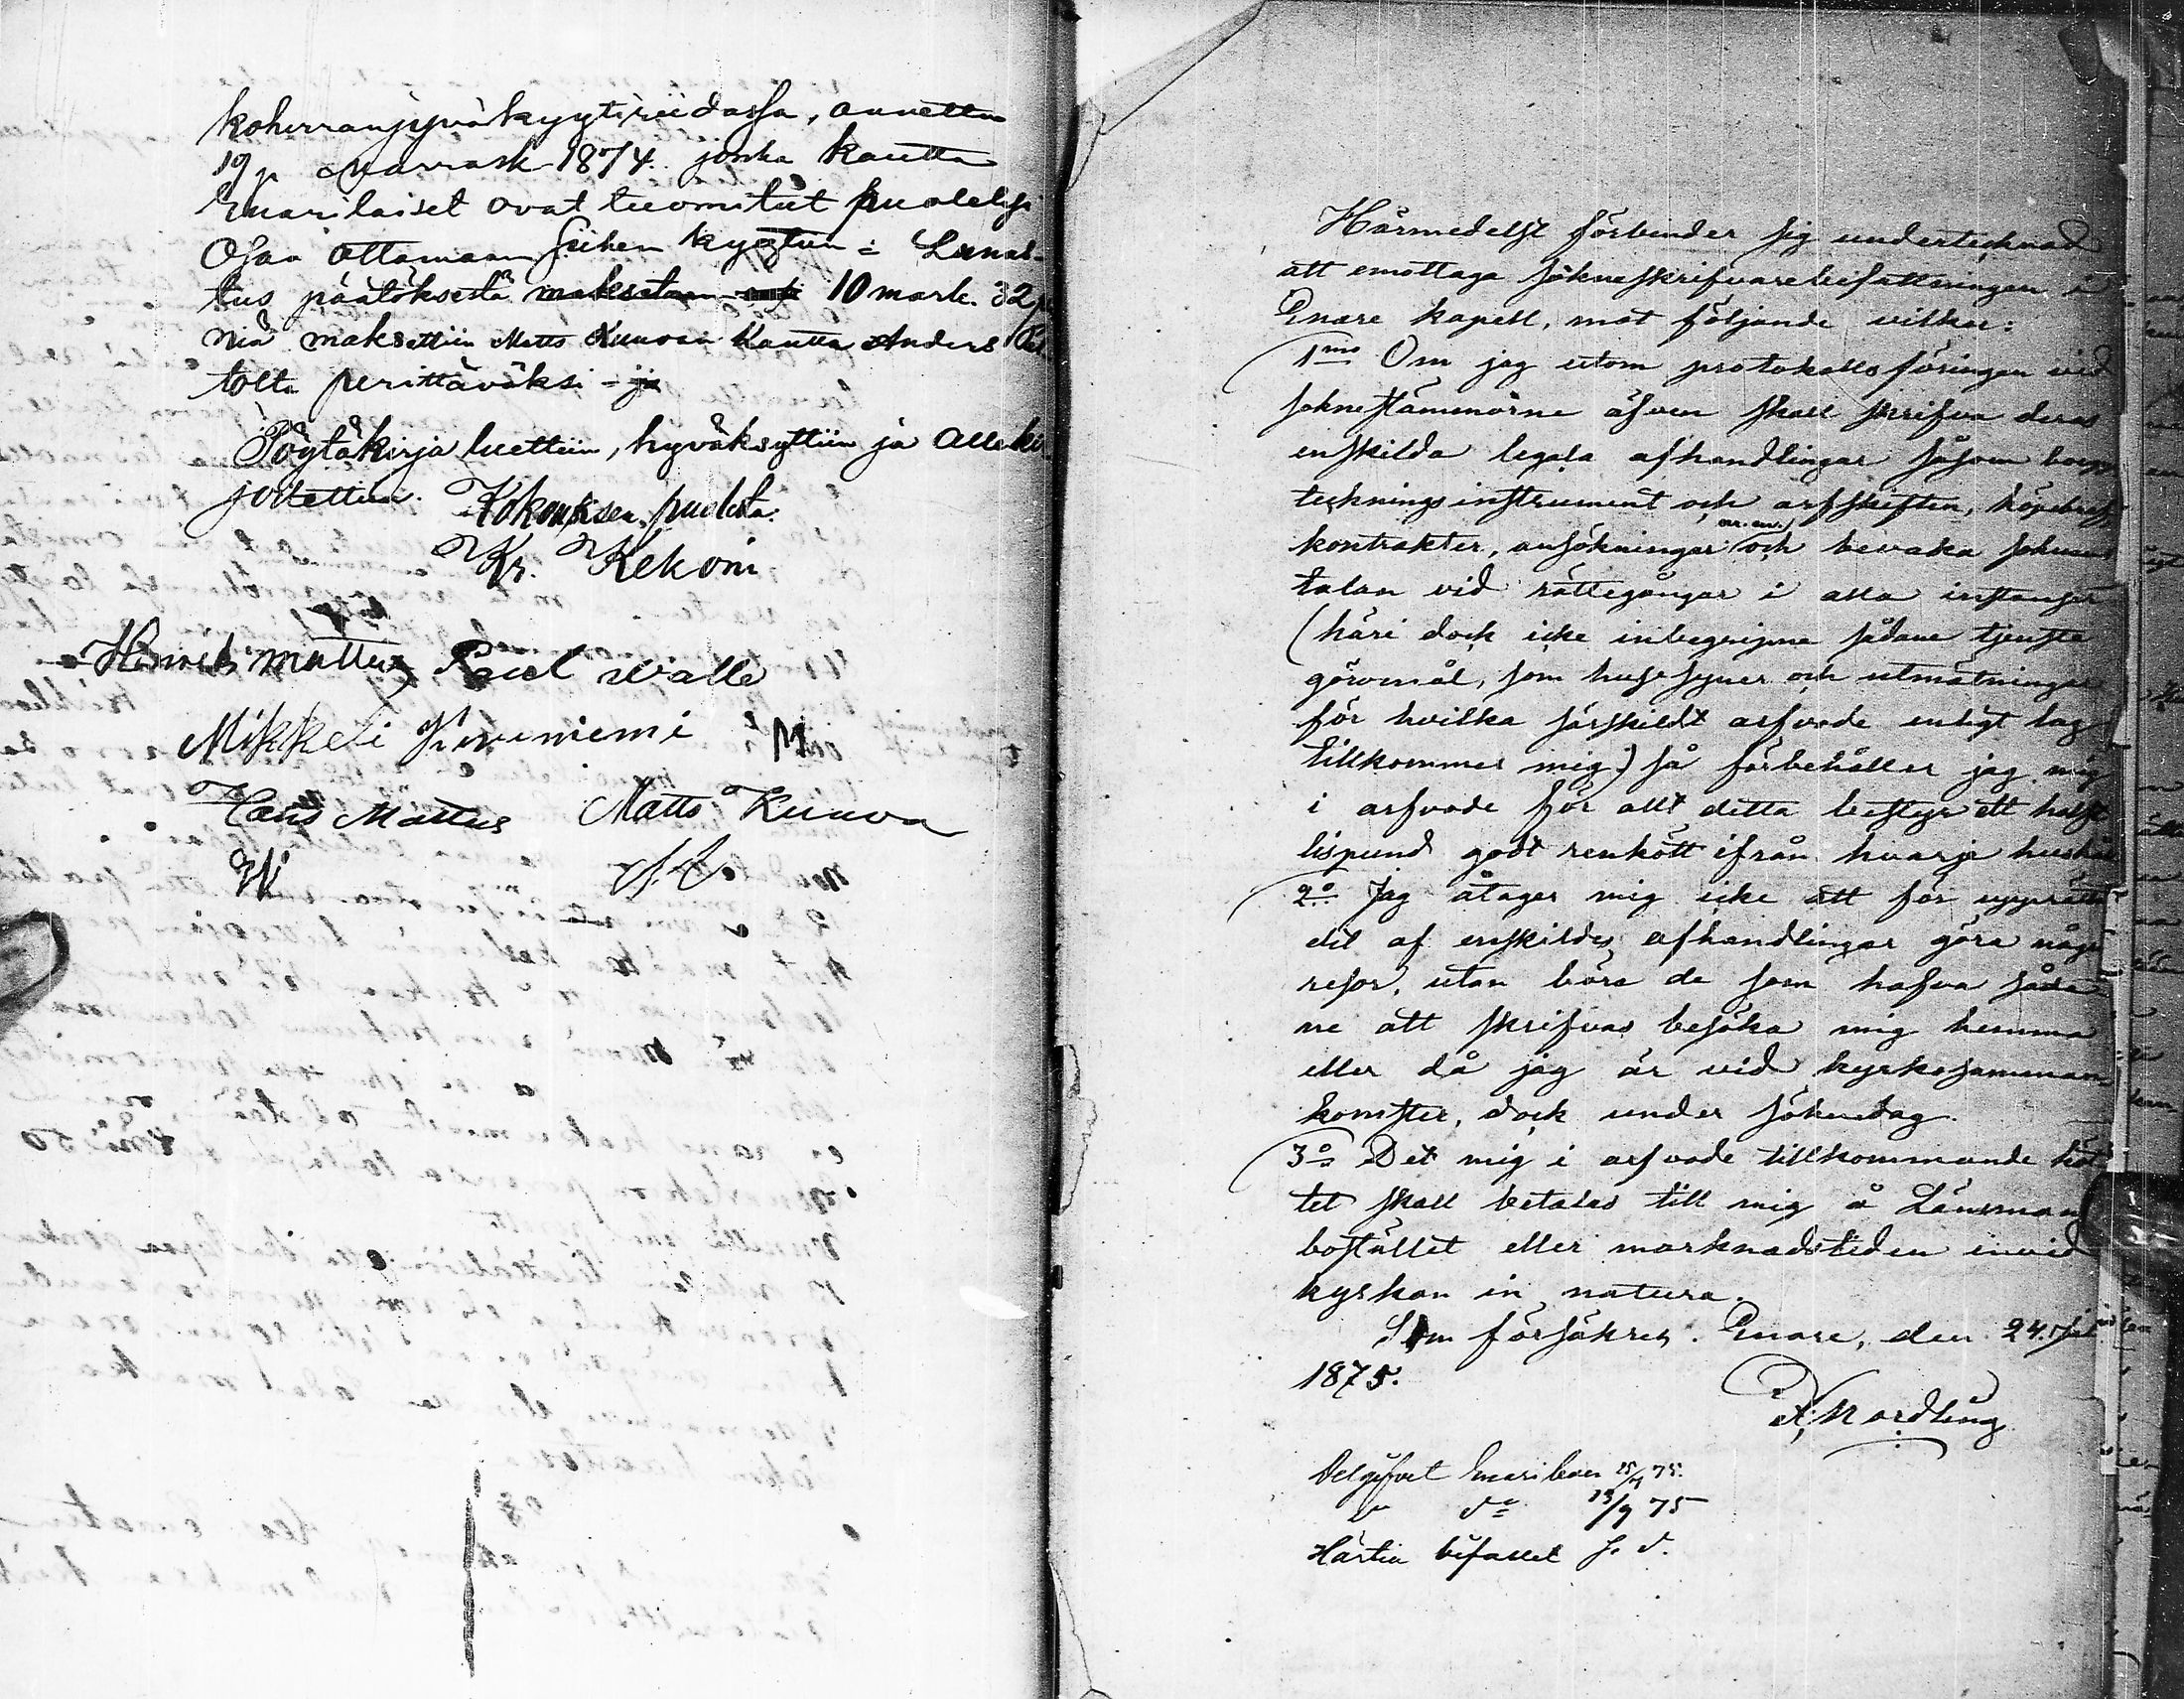 kohvranjyväkyytiriidassa, annettu
19 p. Marrask 1874. jonka kautta
Enarilaiset ovat tuomitut puolelgi
Osan Ottamaan siihen kyytiin = Lunas-
tus päätöksestä maksetaan 10 mark. 32 p
niä maksettiin Matts Kuuvan kautta Anders
tolta perittäväksi - ja
Pöytäkirja luettiin, hyväksyttiin ja Alleki
joitettiin. Kokouksen puolesta:
Kr. Kekoni
Henrik mattus Paul Valle
Mikkeli Kiviniemi M
Hans Mattus Matts Kuuva
Härmedelst förbinder sig undertecknad
att emottaga sökneskrifvarebefattningen i
Enare kapell, mot följande vilkor:
1mo Om jag utom protokollsföringen vid
soknestämmorne äfven skall skrifva deras
enskilda legala afhandlingar såsom boupp
teckningsinstrument och arfskiften, köpebref,
kontrakter, ansökningar m.m. och bevaka soknens
talan vid rättegångar i alla instanser
(häri dock icke inbegripne sådane tjenste
göromål, som husesyner och utmätningar
för hvilka särskildt arfvode enligt lag
tillkommer mig) så förbehåller jag mig
i arfvode för allt detta bestyr ett halft
lispund godt renkött ifrån hvarje hushåll
2o Jag åtager mig icke att för upprättan
det af enskildes afhandlingar göra några
resor, utan böra de som hafva såda-
ne att skrifvas besöka mig hemma
eller då jag är vid kyrkosamman-
komster, dock under söknedag.
3o Det mig i arfvode tillkommande köt
tet skall betalas till mig å Länsman
bostället eller marknadstiden invid
kyrkan in natura.
Som försäkras. Enare, den 24. Juli
1875.
F, Nordling
Delgifvet Enareboer 25/7 75.
" do 13/9 75
Härtill bifallet s. d.